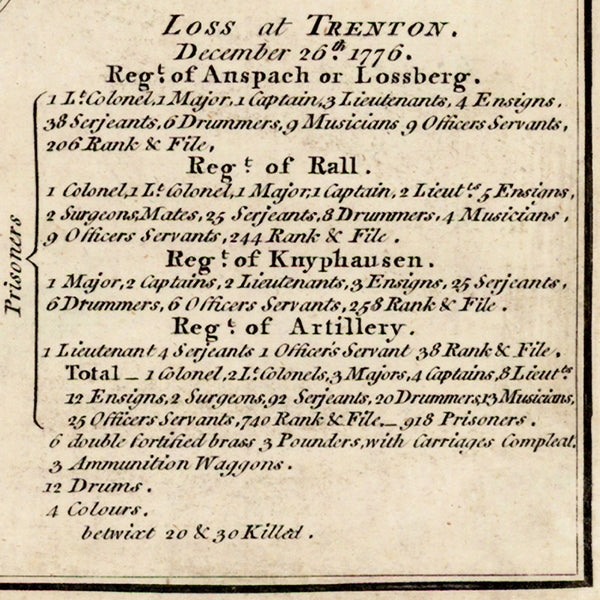 Loss at Trenton.
December 26th. 1776.
Regt. of Anspach or Lossberg.
1 Lt. Colonel, 1 Major, 1 Captain, 3 Lieutenants, 4 Ensigns,
38 Serjeants, 6 Drummers, 9 Musicians 9 Officers Servants,
206 Rank & File,
Regt. of Rall.
1 Colonel, 1 Lt. Colonel, 1 Major, 1 Captain, 2 Lieutts. 5 Ensigns,
2 Surgeons, Mates, 25 Serjeants, 8 Drummers, 4 Musicians,
9 Officers Servants, 244 Rank & File.
Regt. of Knyphausen.
1 Major, 2 Captains, 2 Lieutenants, 3 Ensigns, 25 Serjeants,
6 Drummers, 6 Officers Servants, 258 Rank & File.
Regt. of Artillery.
1 Lieutenant 4 Serjeants 1 Officer's Servant 38 Rank & File.
Total _ 1 Colonel, 2 Lt. Colonels, 3 Majors, 4 Captains, 8 Lieutts.
12 Ensigns, 2 Surgeons, 92 Serjeants, 20 Drummers, 13 Musicians,
25 Officers Servants, 740 Rank & File _ 918 Prisoners.
Prisoners
6 double fortified brass 3 Pounders, with Carriages Compleat.
3 Ammunition Waggons.
12 Drums.
4 Colours.
betwixt 20 & 30 Killed.